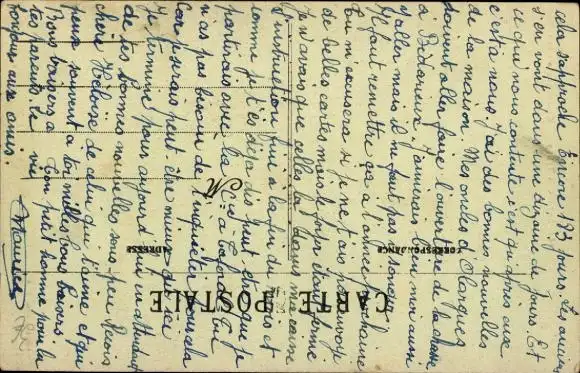 cela rapproche Encore 183 jours les anciens
s'en vont dans une dizaine de jours Et
ce qui nous contente c'est qu'après eux
c'est à nous J'ai des bonnes nouvelles
de la maison Mes oncles d'Olargues
doivent aller faire l'ouverture de la chasse
à Bédarieux. J'aimerais bien moi aussi
y aller mais il ne faut pas y songer
Il faut remettre ça à l'année prochaine
Tu m'excusera si je ne t'ais pas envoyé
de belles cartes mais le foyer étant fermé
je n'avais que celles la dans ma caisse
l'instruction fini à la fin du mois et
comme je t'es déjà dis peut être que je
partirais avec la Cie à Calais Tu
n'as pas besoin de t'inquiéter pour cela
Car je serais peut être mieux qu'ici
Je termine pour aujourd'hui en attendant
de tes bonnes nouvelles sous peu Reçois
chère Héloïse de celui qui t'aime et qui
pense souvent à toi milles bons baisers
Gros baisers à ton petit homme pour la
tes parents le
bonjour aux amis.
Maurice
CORRESPONDANCE
ADRESSE
M
CARTE POSTALE